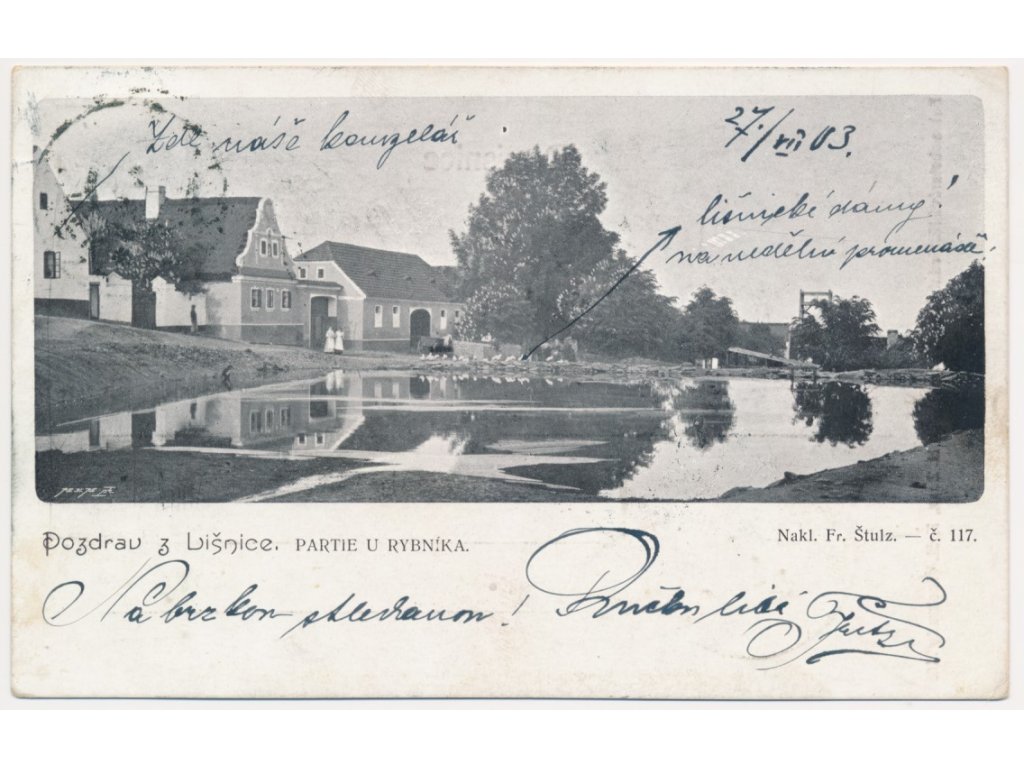 Zde náše kanzelář
27./VII 03.
lišnické dámy!
na nedělní promenádě.
Pozdrav z Lišnice. PARTIE U RYBNÍKA.
Nakl. Fr. Štulz. — č. 117.
Na brzkou shledanou! Ručku líbá